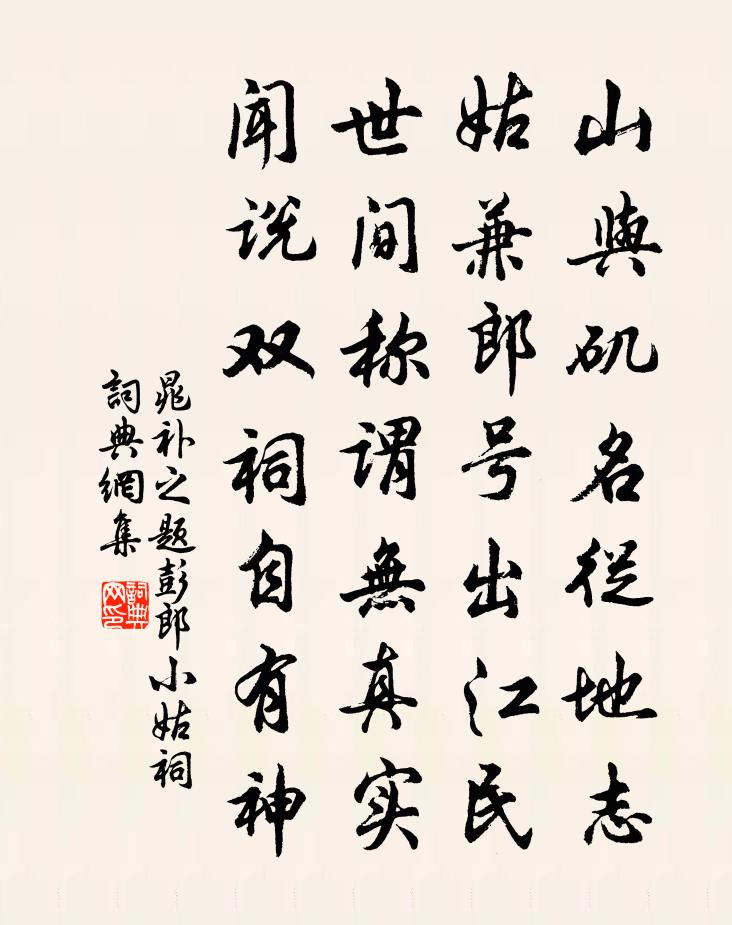 山與矶名從地志
姑兼郎号出江民
世间称谓無真实
闻说双祠自有神
晁补之题彭郎小姑祠
詞典網集
詞典网印